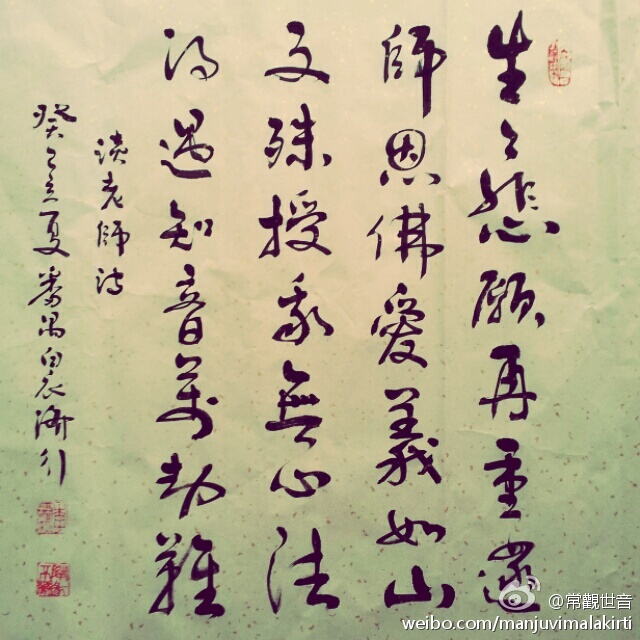 生々悲願再重還
師恩佛愛義如山
文殊授我無心法
得遇知音萬劫難
讀老師詩
癸巳夏番禺白衣濟行
@常觀世音
weibo.com/manjuvimalakirti